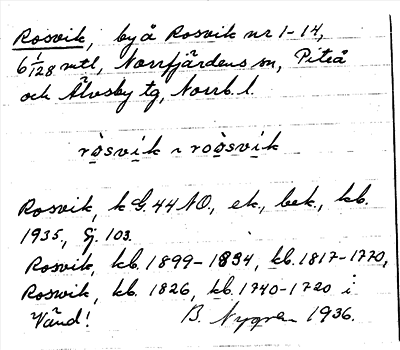 Rosvik, by å Rosvik nr 1-14,
6 1/128 mtl, Norrfjärdens sn, Piteå
och Älvsby tg, Norrb. l.
ròsvik ~ roòsvik
Rosvik, k G. 44 NO, ek., bek., kb.
1935, Gj. 103.
Rosvik, kb. 1899-1834, kb. 1817-1770,
Rosvik, kb. 1826, kb. 1740-1720 i
Vänd! B. Nygren 1936.